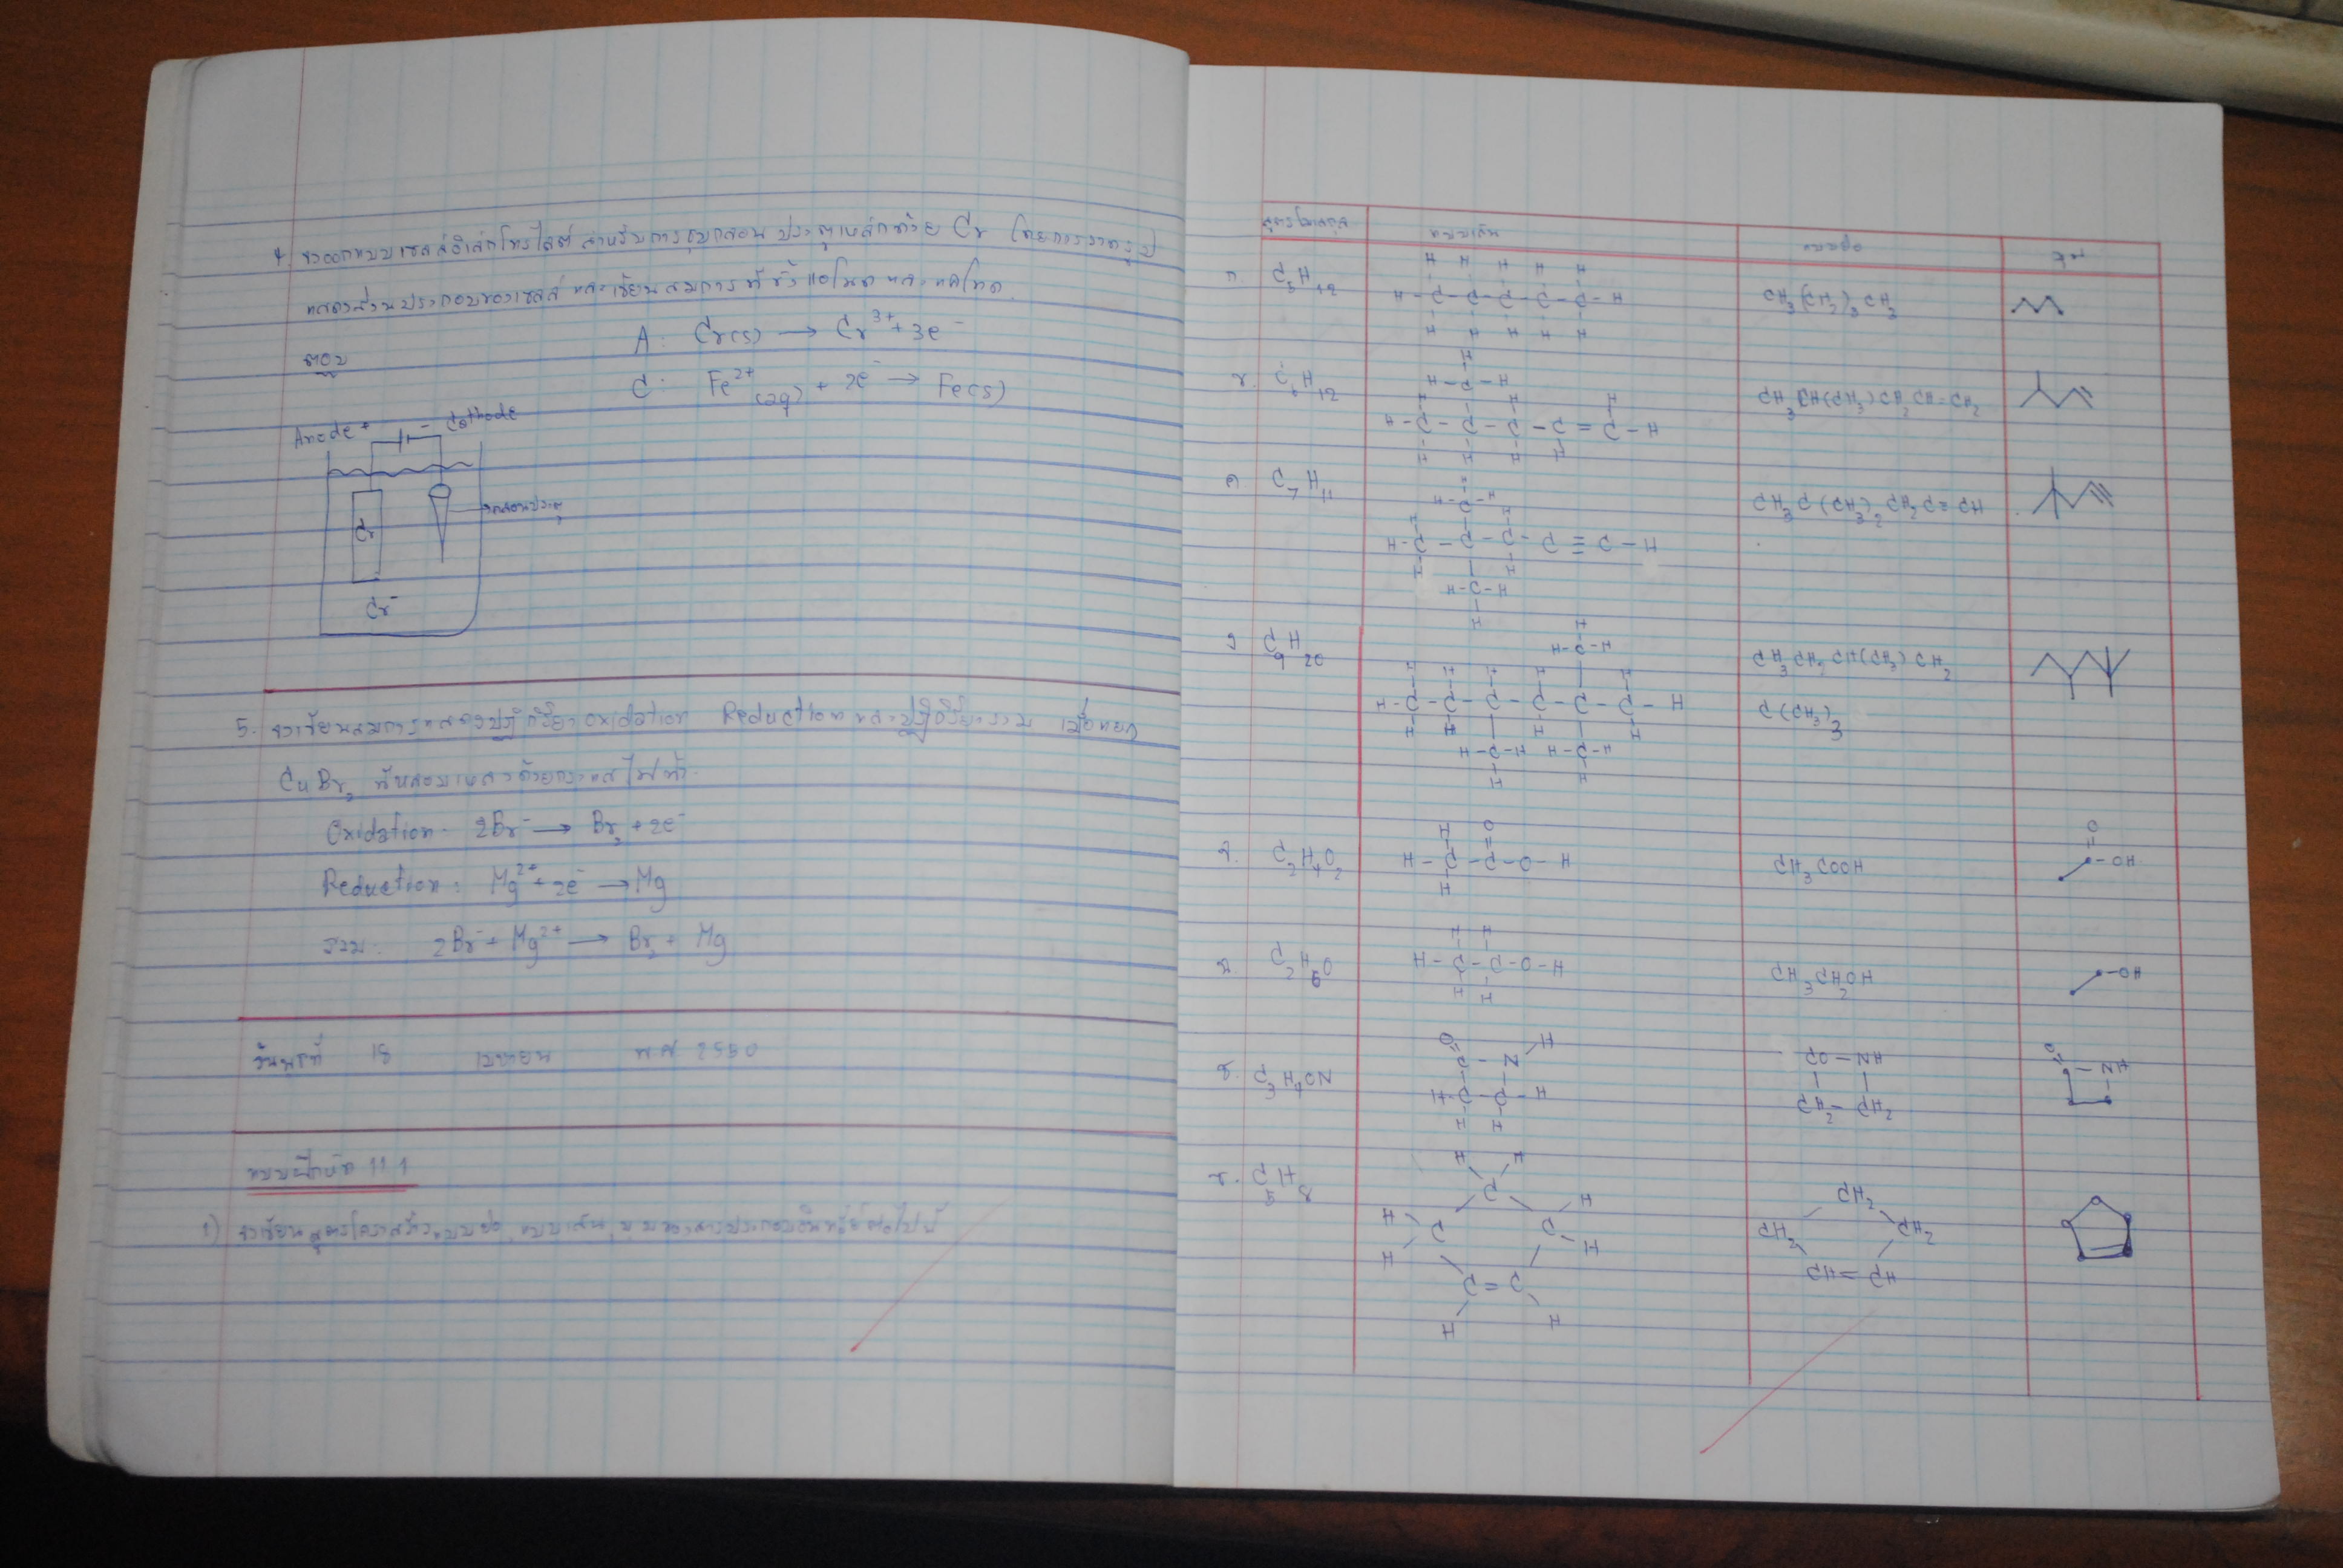 4. จงออกแบบเซลล์อิเล็กโทรไลต์ สำหรับการชุบกลอนประตูเหล็กด้วย Cr โดยการวาดรูป
แสดงส่วนประกอบของเซลล์ และเขียนสมการที่ขั้วแอโนด และแคโทด
ตอบ
A: Cr(s) → Cr³⁺ + 3e⁻
C: Fe²⁺(aq) + 2e⁻ → Fe(s)
Anode + − Cathode
กลอนประตู
Cr
Cr⁻
5. จงเขียนสมการแสดงปฏิกิริยา oxidation Reduction และปฏิกิริยารวม เมื่อแยก
CuBr₂ ที่หลอมเหลวด้วยกระแสไฟฟ้า
Oxidation: 2Br⁻ → Br₂ + 2e⁻
Reduction: Mg²⁺ + 2e⁻ → Mg
รวม: 2Br⁻ + Mg²⁺ → Br₂ + Mg
วันพุธที่ 18 เมษายน พ.ศ 2550
แบบฝึกหัด 11.1
1) จงเขียนสูตรโครงสร้างแบบย่อ แบบเส้น
สูตรโมเลกุล แบบเส้น แบบย่อ
ก. C₅H₁₂ CH₃(CH₂)₃CH₃
ข. C₆H₁₂ CH₃CH(CH₃)CH₂CH=CH₂
ค C₇H₁₁ CH₃C(CH₃)₂CH₂C≡CH
ง C₉H₂₀ CH₃CH₂CH(CH₃)CH₂
C(CH₃)₃
จ. C₂H₄O₂ CH₃COOH
ฉ. C₂H₆O CH₃CH₂OH
ช. C₃H₄ON CO–NH
CH₂–CH₂
ซ. C₅H₈ CH₂
CH₂ CH₂
CH=CH